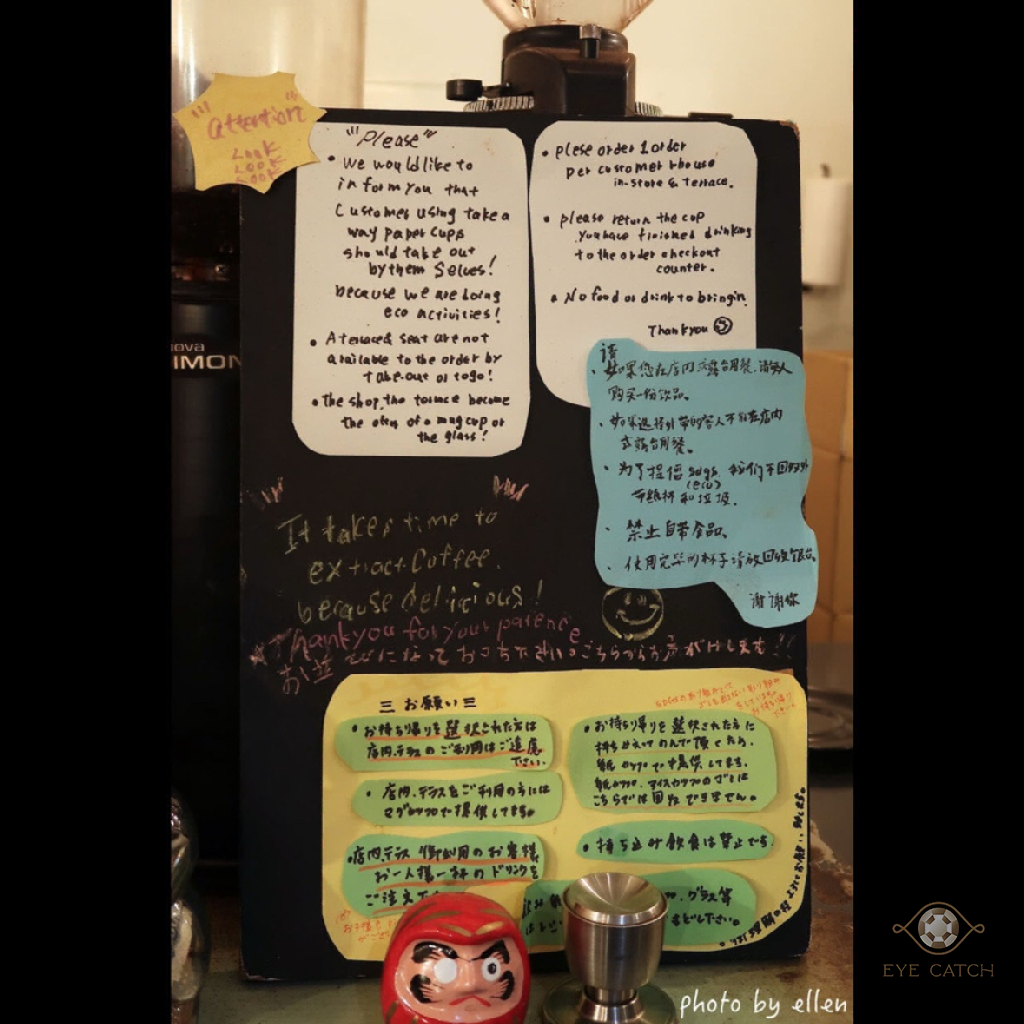 "Attention"
LOOK
LOOK
LOOK
"Please"
• We would like to
inform you that
Customer using take a
way paper cups
should take out
by them selves!
because we are doing
eco activities!
• A terraced seat are not
available to the order by
take-out or to go!
• The shop, the terrace become
the oken of a mug cup or
the glass!
• plese order 1 order
per customer
in-store & terrace.
• please return the cup
you have finished drinking
to the order checkout
counter.
• No food or drink to bringin.
Thank you
请
• 如果您在店内或露台用餐,请每人
购买一份饮品。
• 如果选择外带的客人不能在店内
或露台用餐。
• 为了提倡 sdgs 我们不回收外
(eco)
带纸杯和垃圾.
• 禁止自带食品、
• 使用完毕的杯子请放回收银台
谢谢你
It takes time to
extract Coffee.
because delicious!
Thank you for your patience
お並びになってお まち下さい。こちらからお声がけします!!
三 お願い 三
• お持ち帰りを選択された方は
店内、テラスのご利用はご遠慮
下さい。
• 店内、テラスをご利用の方には
マグカップで提供してます。
• 店内、テラス御利用のお客様
お一人様一杯のドリンクを
ご注文下
• お持ち帰りを選択された方に
持ちかえってのんで頂くため、
紙カップで提供してます。
紙カップ、アイスカップのゴミは
こちらでは回収できません。
• 持ち込み飲食は禁止です。
グラス等
もどし下さい。
nova
SIMON
EYE CATCH
photo by ellen